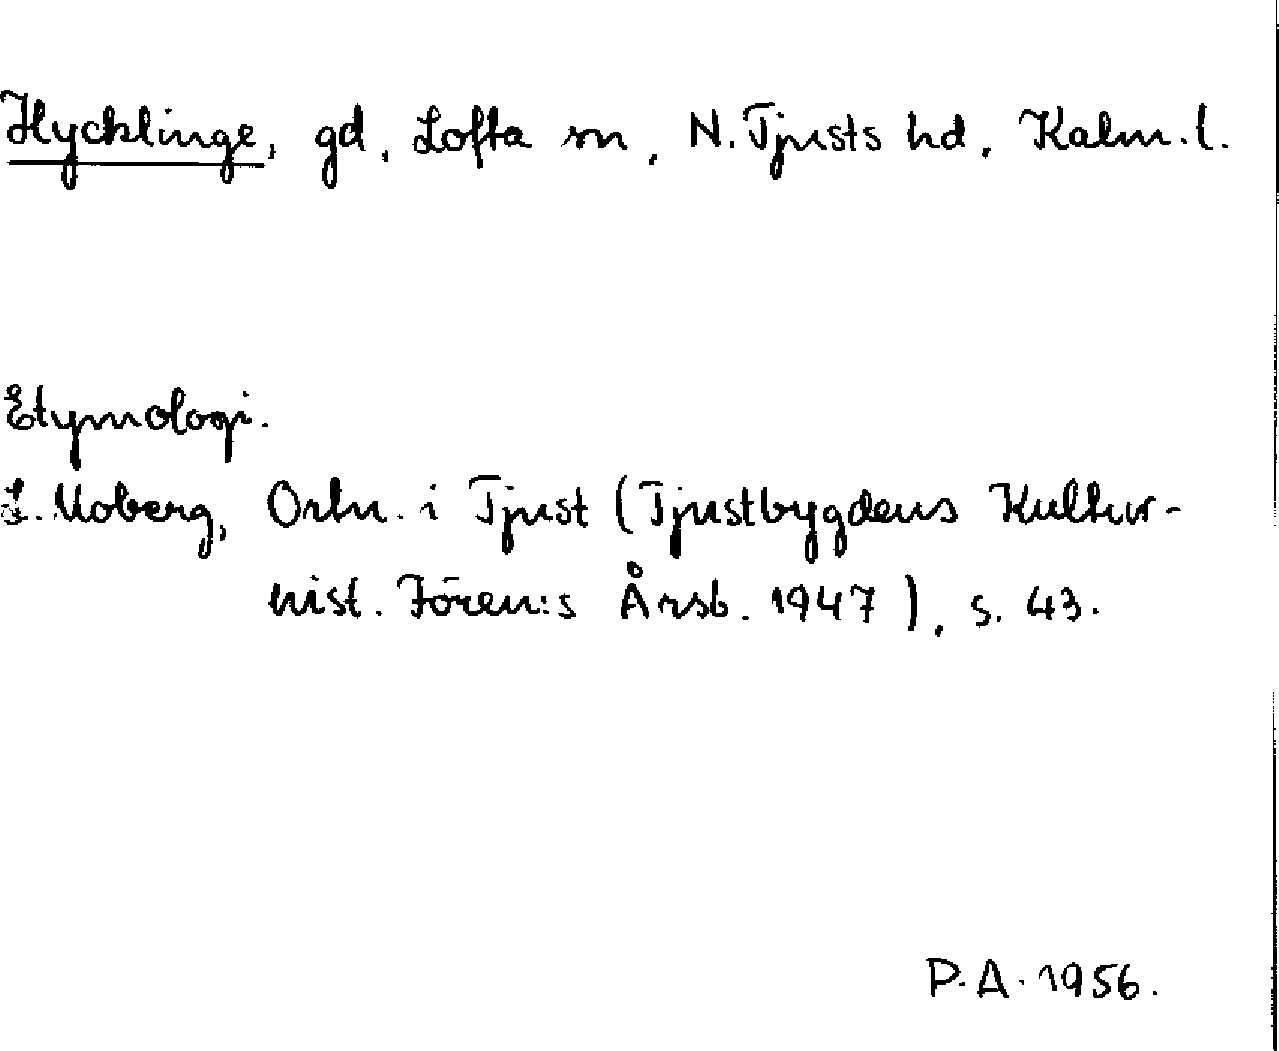 Hycklinge, gd, Lofta sn, N. Tjusts hd, Kalm. l.
Etymologi.
L. Moberg, Ortn. i Tjust (Tjustbygdens Kultur-
hist. Fören:s Årsb. 1947), s. 43.
P.A. 1956.